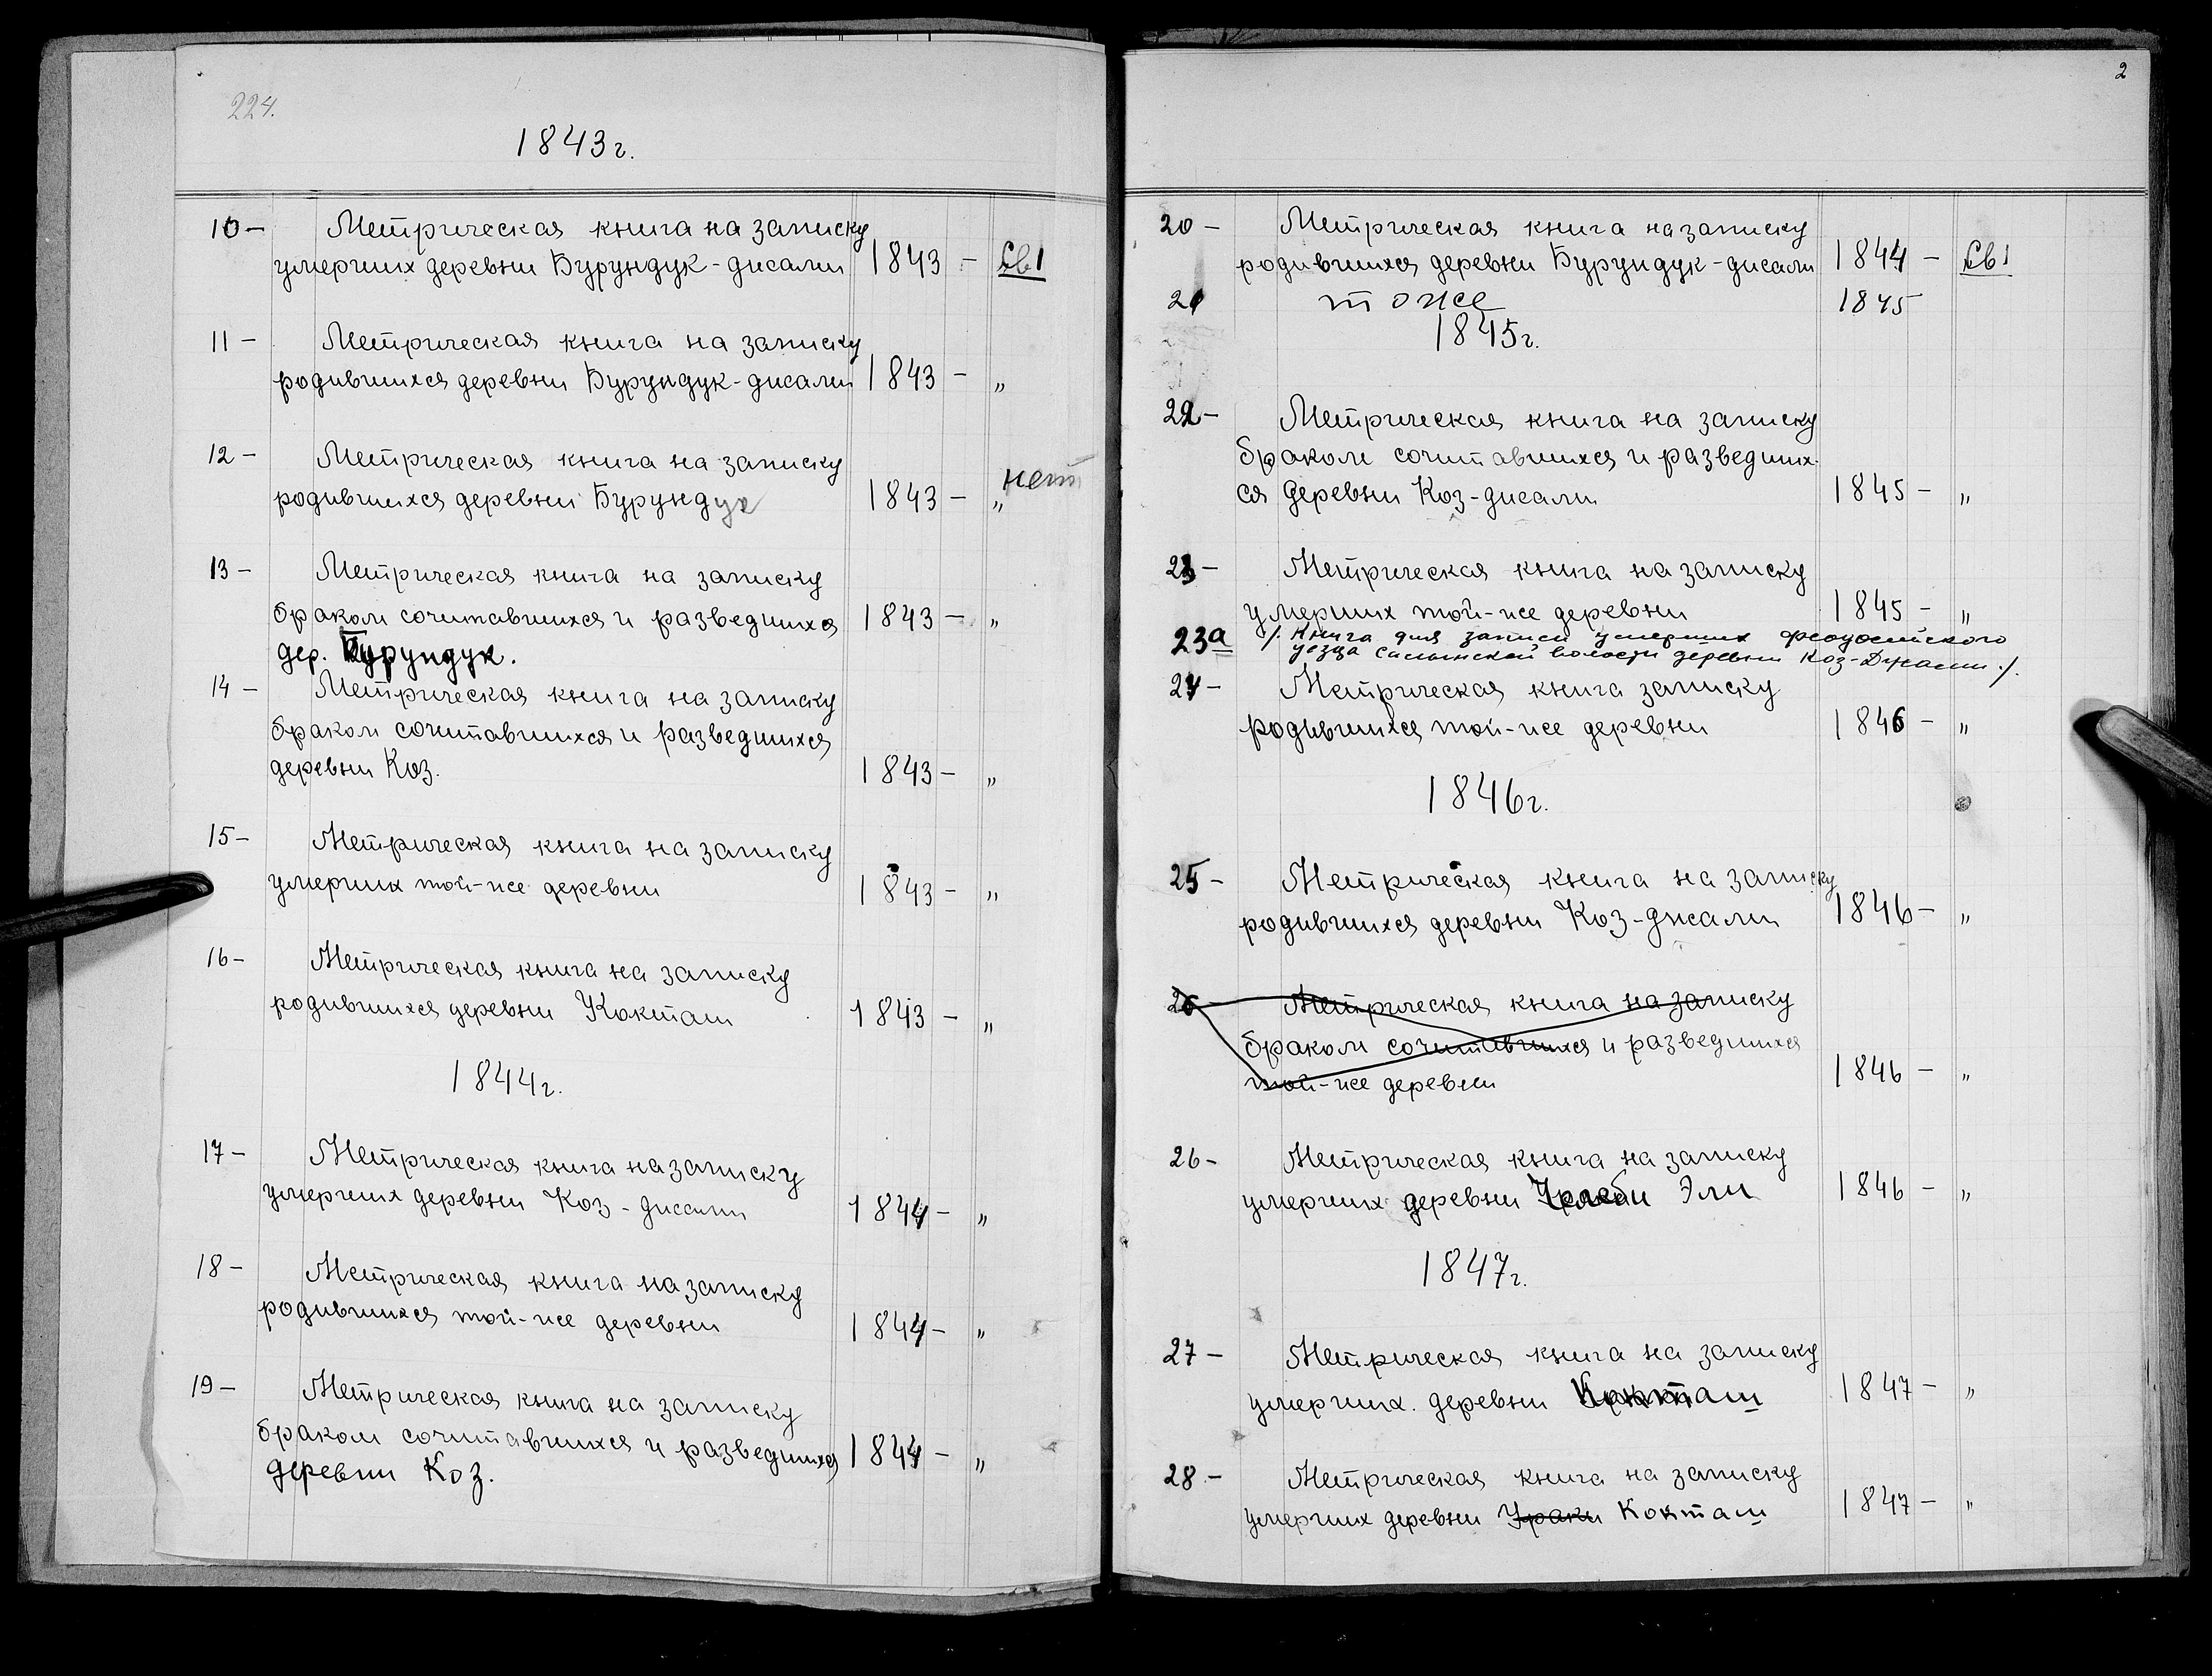 224.
1843г.
10 – Метрическая книга на записку
умерших деревни Бурундук-джами 1843 – Св1
11 – Метрическая книга на записку
родившихся деревни Бурундук-джами 1843 – „
12 – Метрическая книга на записку нет
родившихся деревни Бурундук 1843 – „
13 – Метрическая книга на записку
браком сочитавшихся и разведшихся 1843 – „
дер. Бурундук.
14 – Метрическая книга на записку
браком сочитавшихся и разведшихся
деревни Коз. 1843 – „
15 – Метрическая книга на записку
умерших той-же деревни 1843 – „
16 – Метрическая книга на записку
родившихся деревни Кокташ 1843 – „
1844г.
17 – Метрическая книга на записку
умерших деревни Коз-джами 1844 – „
18 – Метрическая книга на записку
родившихся той-же деревни 1844 – „
19 – Метрическая книга на записку
браком сочитавшихся и разведшихся 1844 – „
деревни Коз.
2
20 – Метрическая книга на записку
родившихся деревни Бурундук-джами 1844 – Св1
21 тоже 1845
1845г.
22 – Метрическая книга на записку
браком сочитавшихся и разведших-
ся деревни Коз-джами 1845 – „
23 – Метрическая книга на записку
умерших той-же деревни 1845 – „
23а /. Книга для записи умерших феодосийского
уезда Салынской волости деревни Коз-Джами ./.
24 – Метрическая книга записку
родившихся той-же деревни 1846 – „
1846г.
25 – Метрическая книга на записку
родившихся деревни Коз-джами 1846 – „
26 – Метрическая книга на записку
браком сочитавшихся и разведшихся
той-же деревни 1846 – „
26 – Метрическая книга на записку
умерших деревни Челеби Эли 1846 – „
1847г.
27 – Метрическая книга на записку
умерших. деревни Кокташ 1847 – „
28 – Метрическая книга на записку
умерших деревни Кокташ 1847 – „